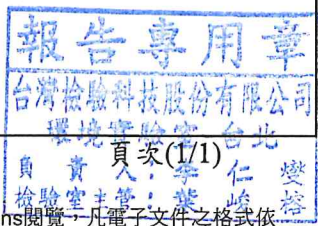 報告專用章
台灣檢驗科技股份有限公司
環境實驗室-台北
頁次(1/1)
負責人：李仁燮
檢驗室主管：葉峻榕
ns閱覽，凡電子文件之格式依